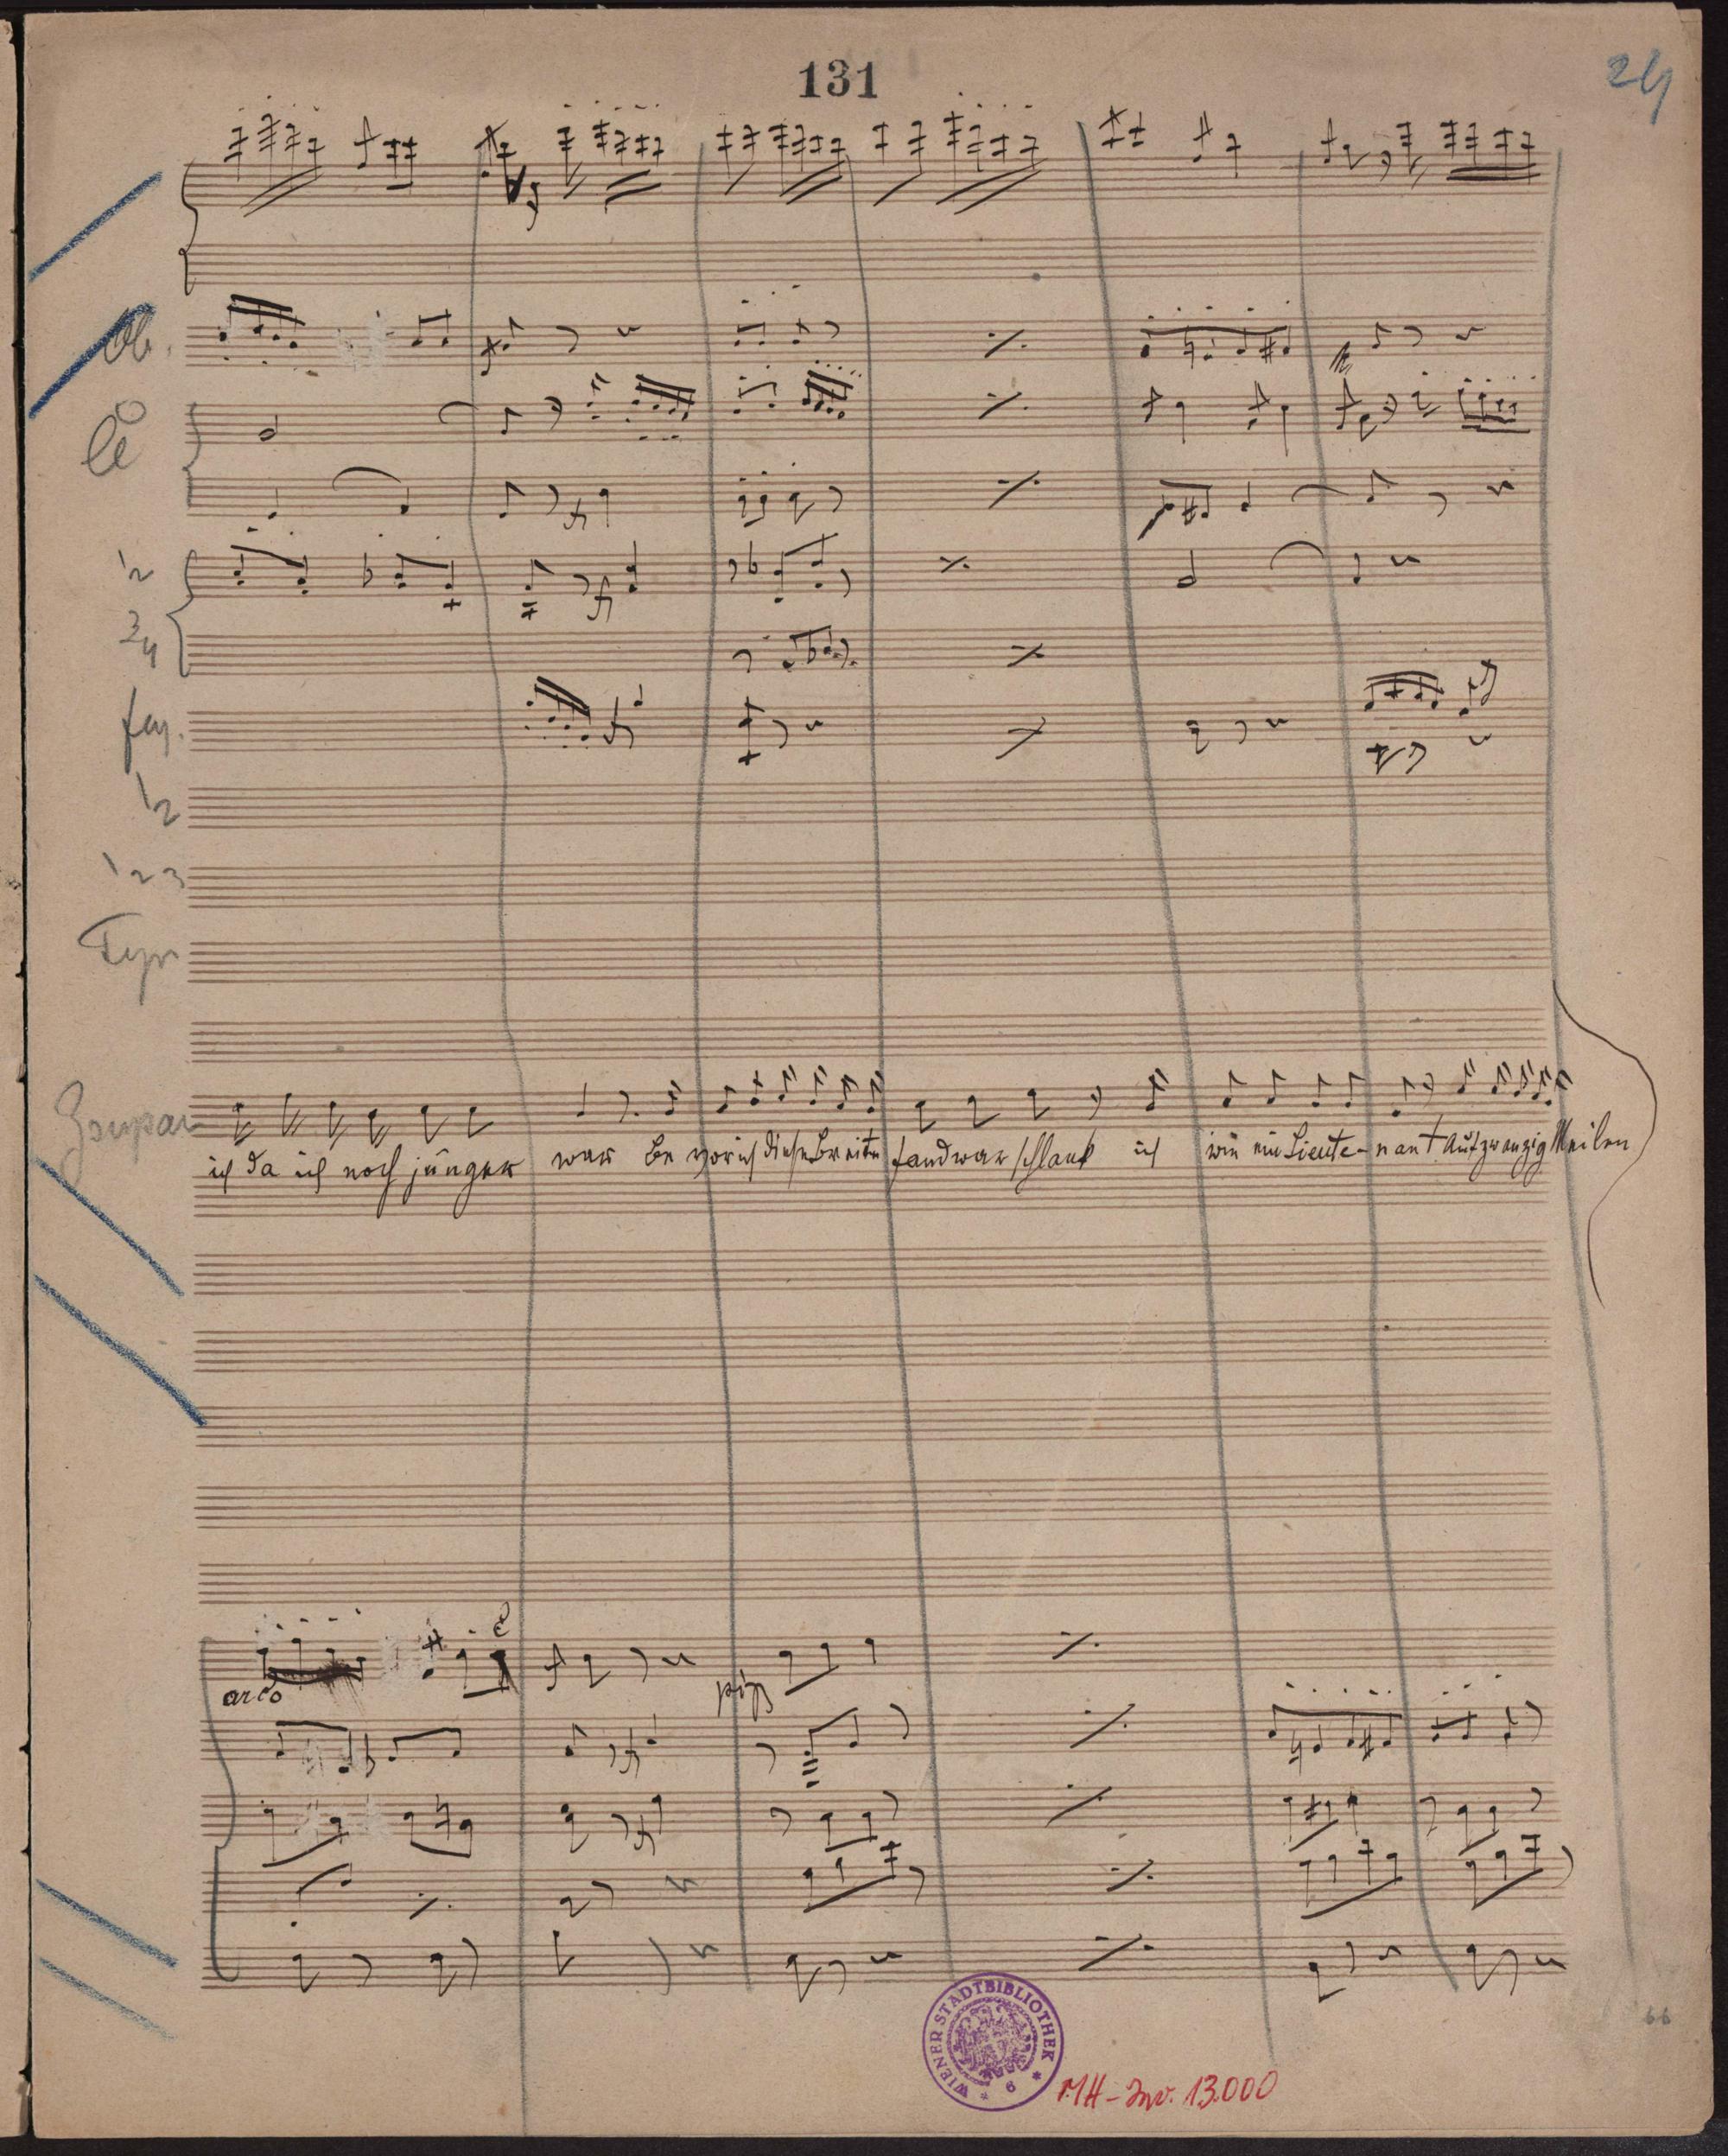 131
24
Ob.
Cl
1 2
3 4
fag.
1 2
1 2 3
Tym
Zsupan
ich da ich noch jünger war be vor ich diese Breite fand war schlank ich wie ein Lieute-nant auf zwanzig Meilen
arco
pizz
WIENER STADTBIBLIOTHEK
* 6 *
MH-Inv. 13.000
66